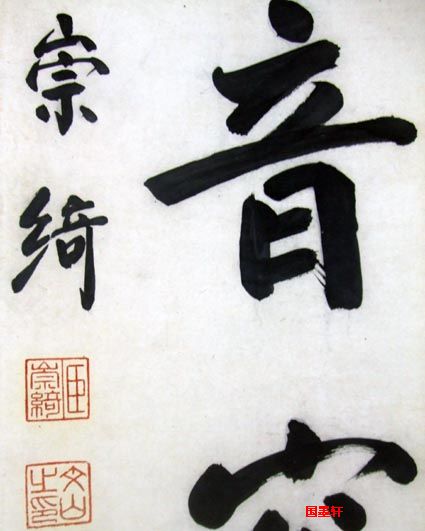 音
崇綺
臣
崇綺
文山
之印
国墨轩